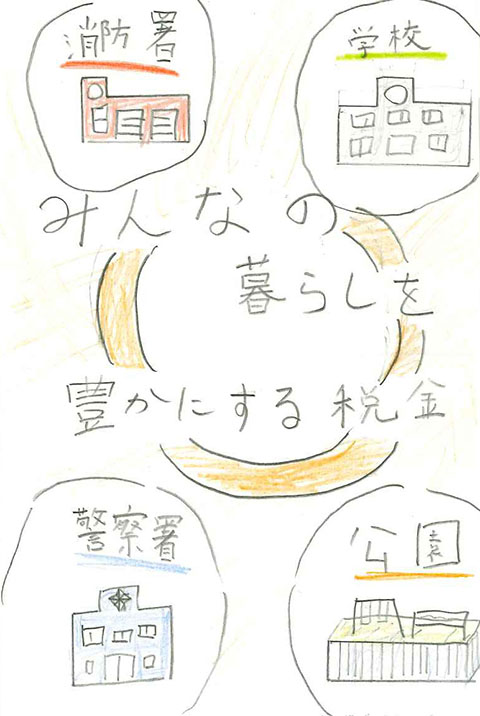 消防署
学校
みんなの
暮らしを
豊かにする税金
警察署
公園